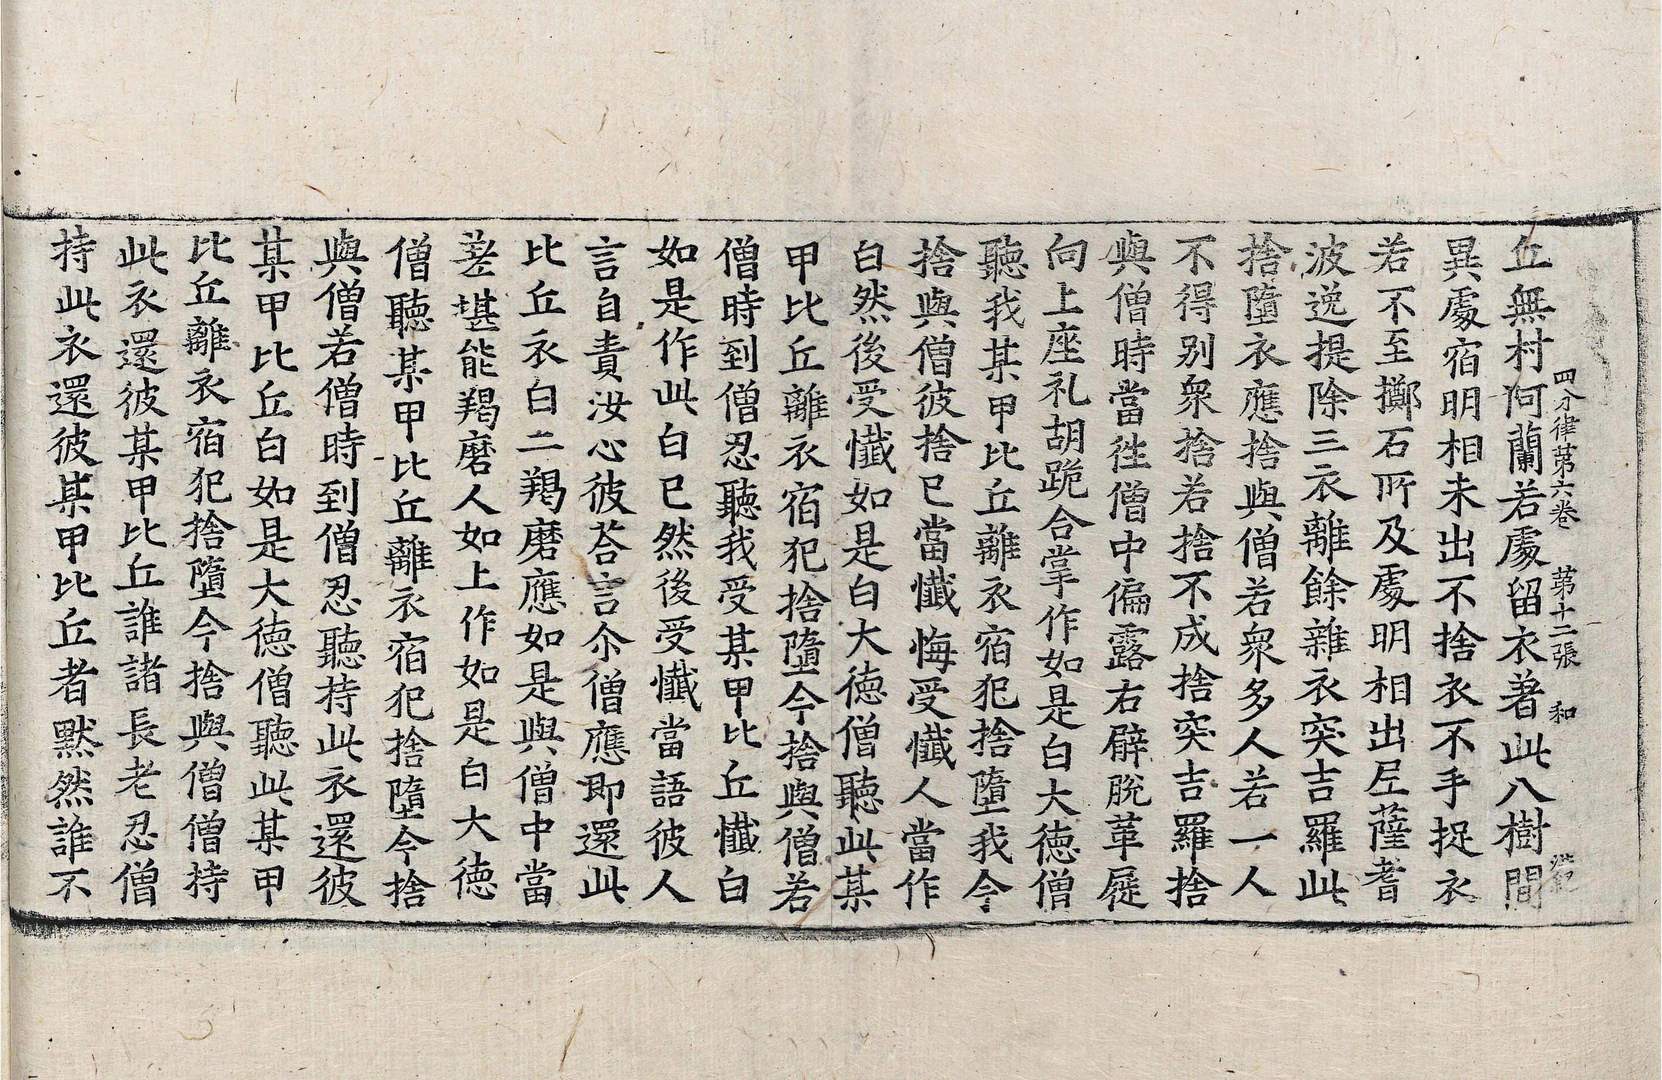 四分律第六卷　第十二張　和
丘無村阿蘭若處留衣著此八樹間
異處宿明相未出不捨衣不手捉衣
若不至擲石所及處明相出尼薩耆
波逸提除三衣離餘雜衣突吉羅此
捨墮衣應捨與僧若衆多人若一人
不得別衆捨若捨不成捨突吉羅捨
與僧時當徃僧中偏露右臂脫革屣
向上座礼胡跪合掌作如是白大德僧
聽我某甲比丘離衣宿犯捨墮我今
捨與僧彼捨已當懺悔受懺人當作
白然後受懺如是白大德僧聽此某
甲比丘離衣宿犯捨墮今捨與僧若
僧時到僧忍聽我受某甲比丘懺白
如是作此白已然後受懺當語彼人
言自責汝心彼荅言尒僧應即還此
比丘衣白二羯磨應如是與僧中當
差堪能羯磨人如上作如是白大德
僧聽某甲比丘離衣宿犯捨墮今捨
與僧若僧時到僧忍聽持此衣還彼
某甲比丘白如是大德僧聽此某甲
比丘離衣宿犯捨墮今捨與僧僧持
此衣還彼某甲比丘誰諸長老忍僧
持此衣還彼某甲比丘者默然誰不